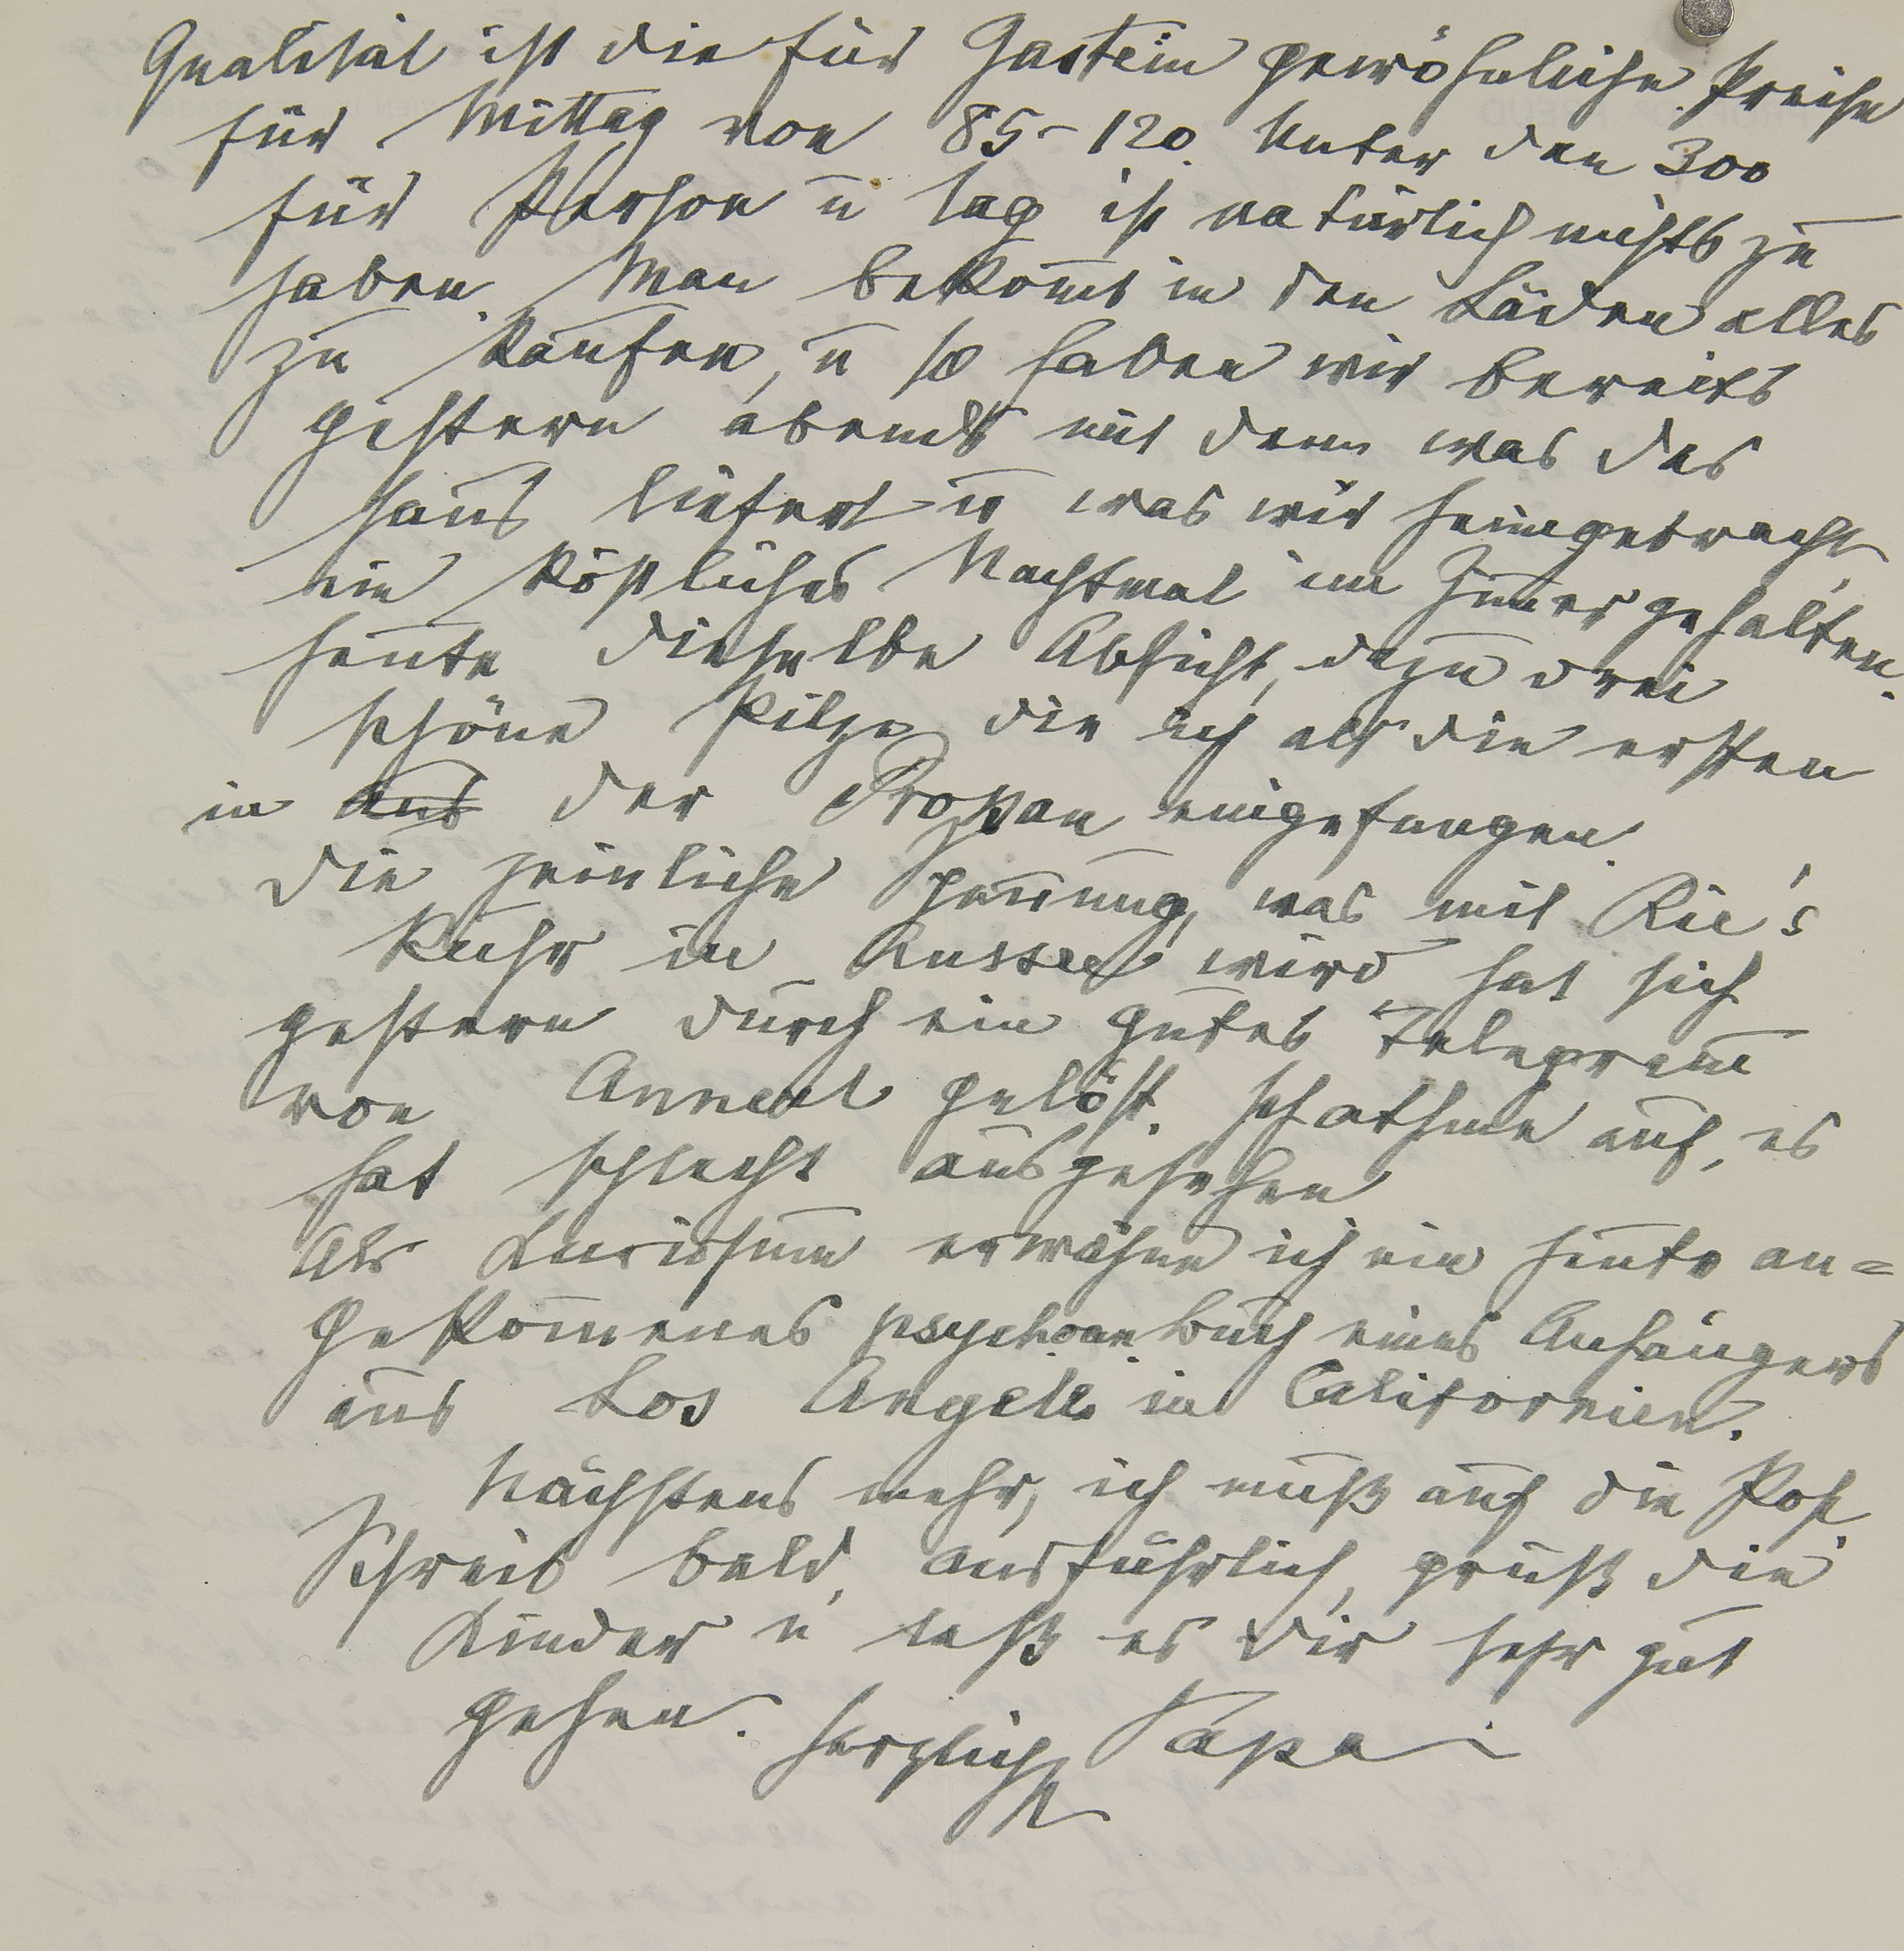 Qualität ist die für Gastein gewöhnliche. Preise
für Mittag von 85-120. Unter den 300
für Person u Tag ist natürlich nichts zu
haben. Man bekom̄t in den Läden alles
zu kaufen, u so haben wir bereits
gestern abends mit dem was das
Haus liefert u was wir heimgebracht,
ein köstliches Nachtmal im Zim̄er gehalten.
heute dieselbe Absicht, dazu drei
schöne Pilze die ich als die ersten
in aus der Propan eingefangen.
Die peinliche Spannung, was mit Rie's
Ruhr in Aussee wird hat sich
gestern durch ein gutes Telegram̄
von Annerl gelöst. Ich athme auf, es
hat schlecht ausgesehen
Als Curiosum erwähne ich ein heute an=
gekom̄enes psychoan. Buch eines Anfängers
aus Los Angeles in Californien.
Nächstens mehr, ich muß auf die Post.
Schreib bald, ausführlich, grüß die
Kinder u laß es dir sehr gut
gehen. Herzlich Papa